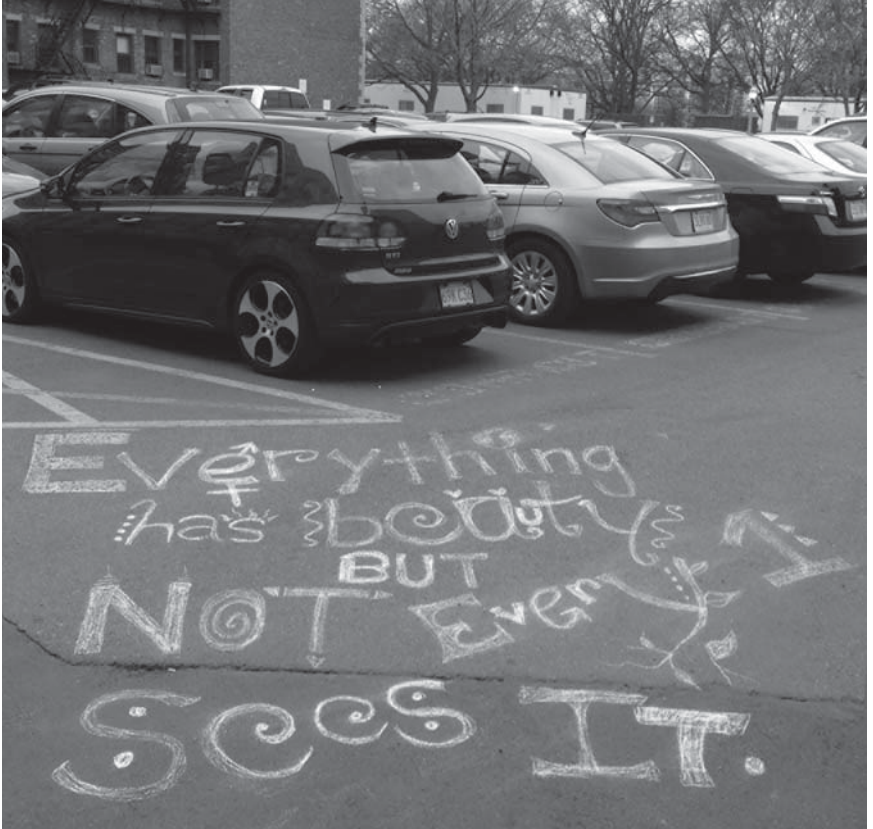 Everything
has beauty
BUT
NOT Every 1
Sees IT.